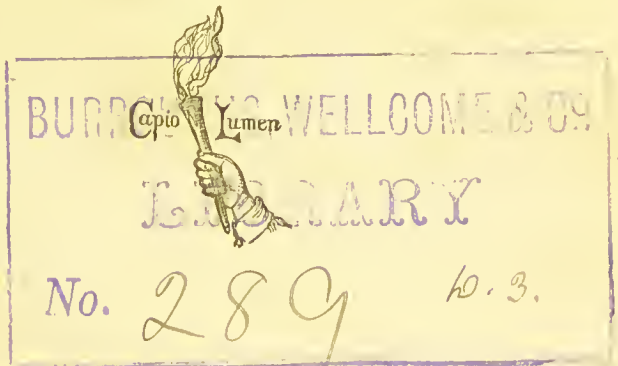 BURROUGHS WELLCOME & CO.
Capio Lumen
LIBRARY
No. 289 D. 3.